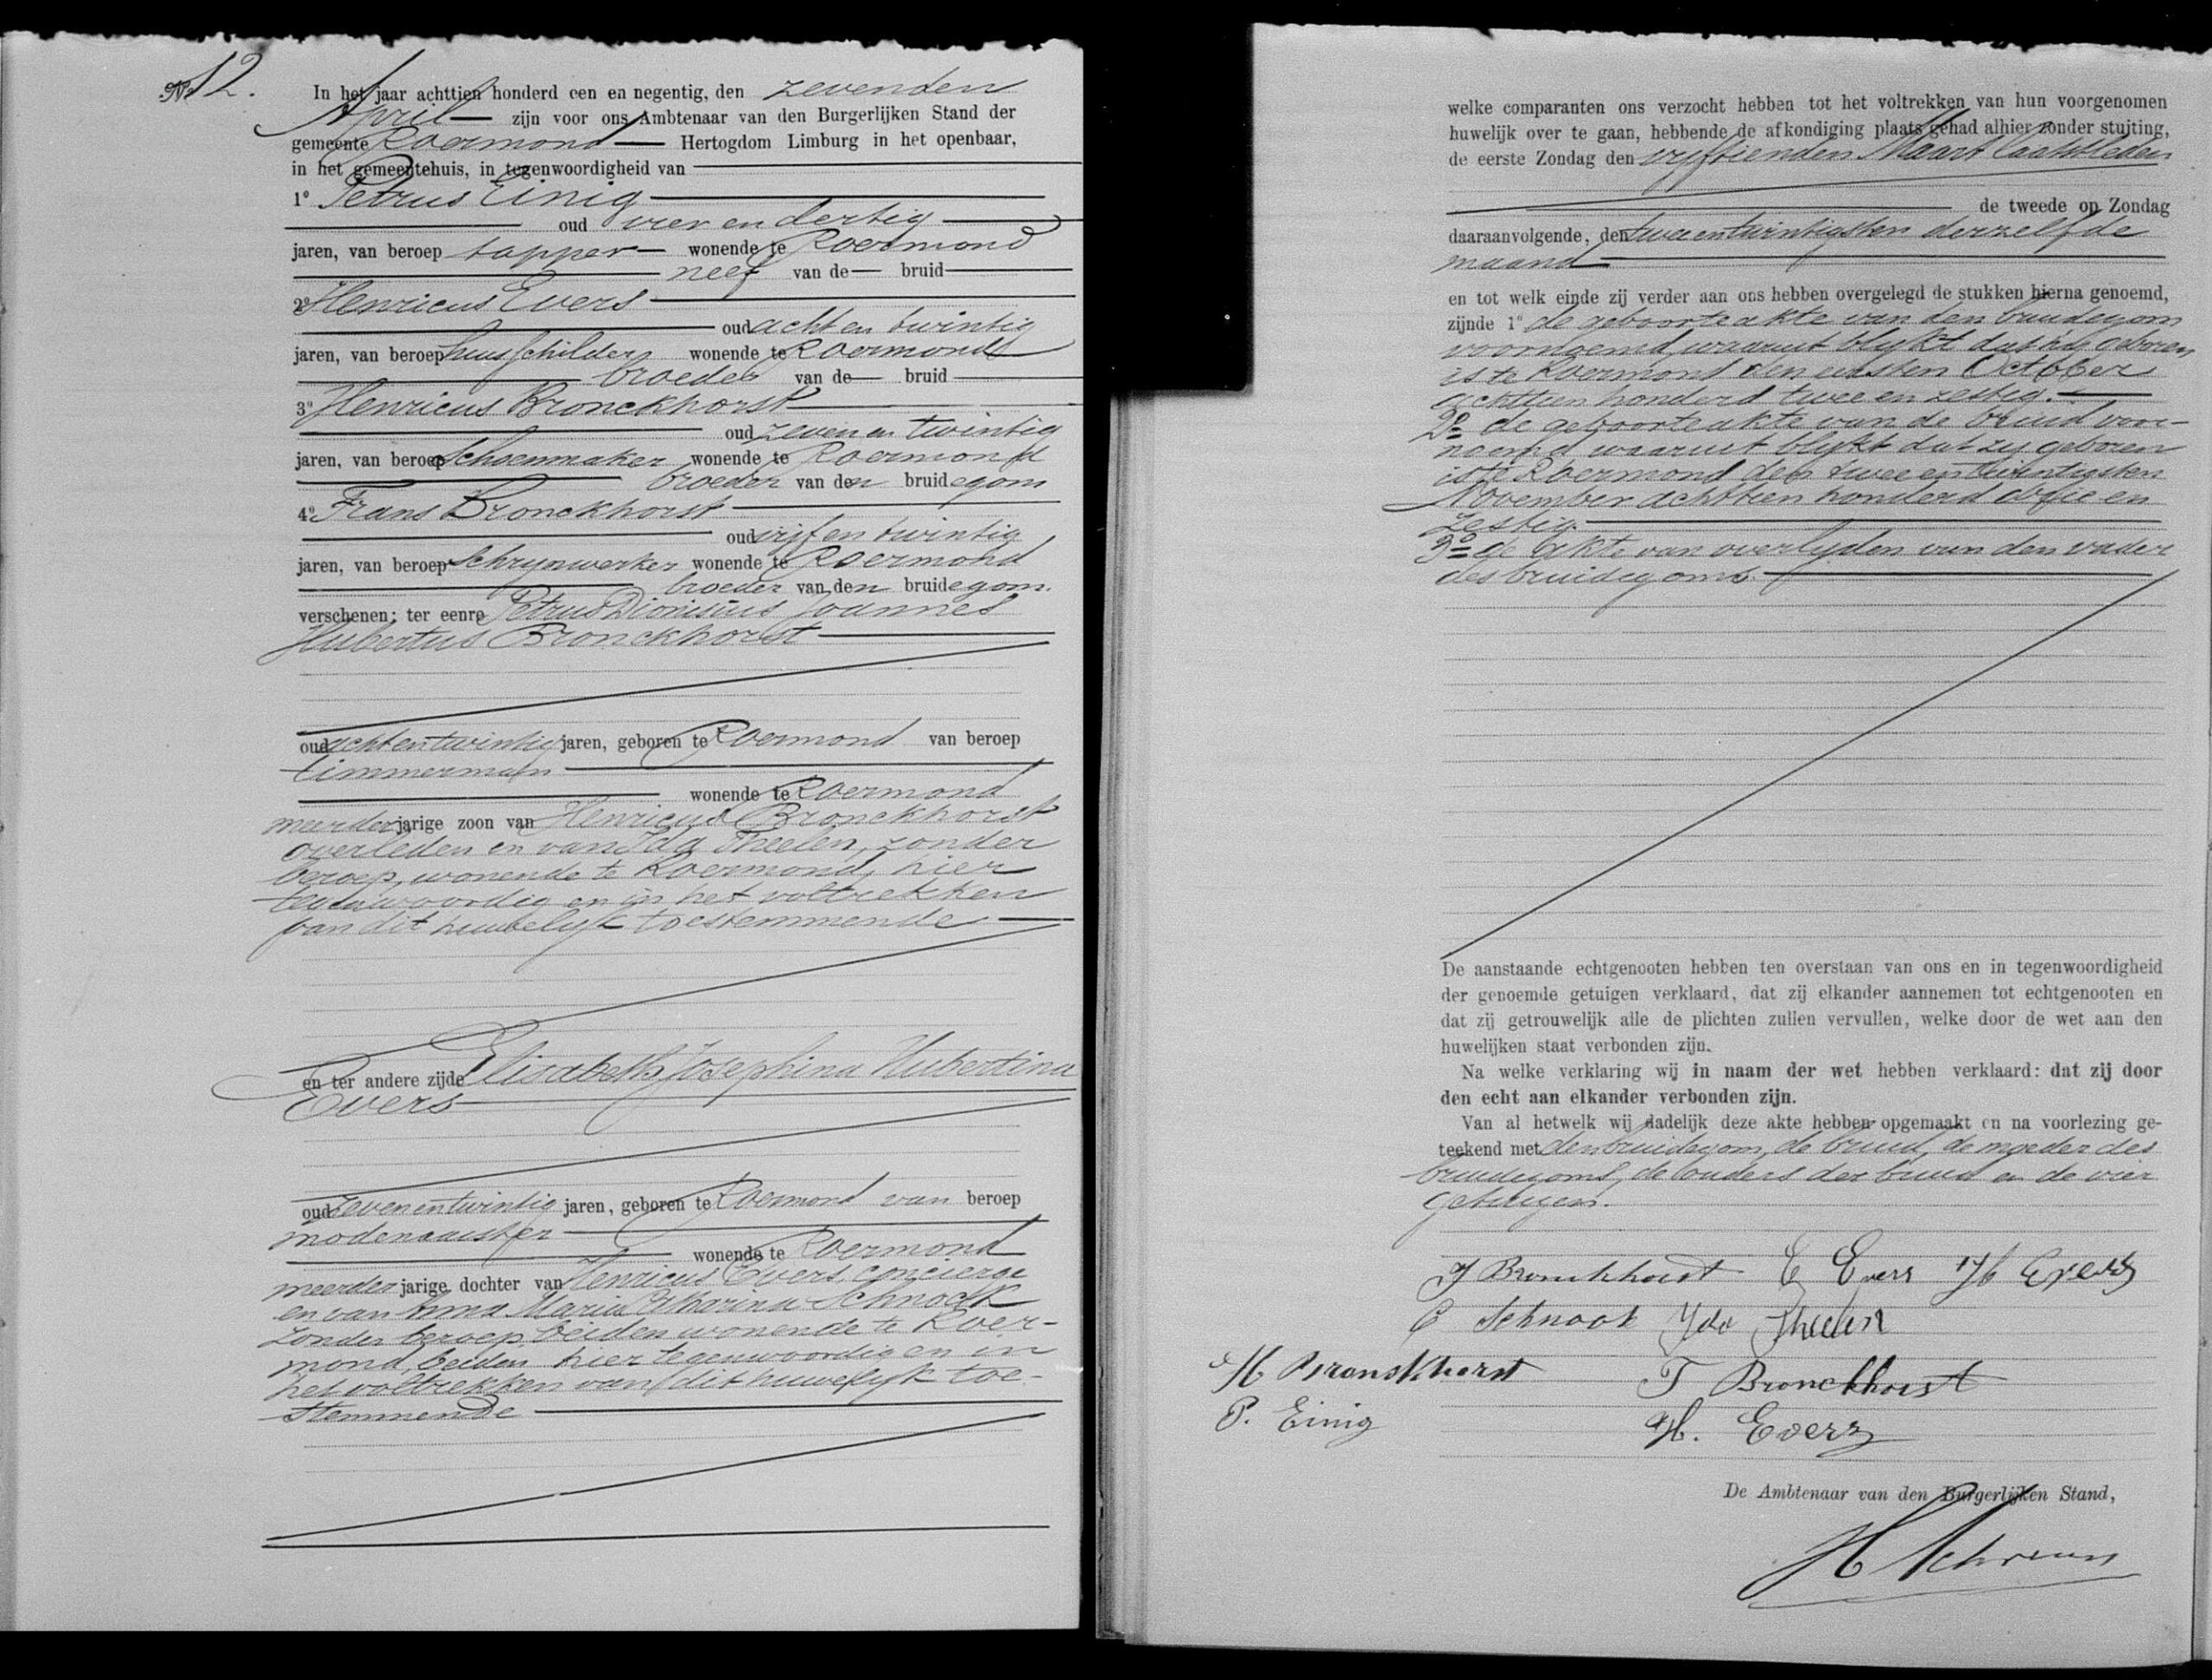 No 12.
In het jaar achttien honderd een en negentig, den zevenden
April zijn voor ons Ambtenaar van den Burgerlijken Stand der
gemeente Roermond Hertogdom Limburg in het openbaar,
in het gemeentehuis, in tegenwoordigheid van
1o Petrus Einig
oud vier en dertig
jaren, van beroep tapper wonende te Roermond
neef van de bruid
2o Henricus Evers
oud acht en twintig
jaren, van beroep huisschilder wonende te Roermond
broeder van de bruid
3o Henricus Bronckhorst
oud zeven en twintig
jaren, van beroep Schoenmaker wonende te Roermond
broeder van den bruidegom
4o Frans Bronckhorst
oud vijf en twintig
jaren, van beroep Schrijnwerker wonende te Roermond
broeder van den bruidegom.
verschenen; ter eenre Petrus Dionisius Joannes
Hubertus Bronckhorst
oud acht en twintig jaren, geboren te Roermond van beroep
timmerman
wonende te Roermond
meerderjarige zoon van Henricus Bronckhorst
overleden en van Ida Theelen, zonder
beroep, wonende te Roermond, hier
tegenwoordig en in het voltrekken
van dit huwelijk toestemmende
en ter andere zijde Elisabeth Josephina Hubertina
Evers
oud zeven en twintig jaren, geboren te Roermond van beroep
modenaaister
wonende te Roermond
meerderjarige dochter van Henricus Evers, concierge
en van Anna Maria Catharina Schnock
zonder beroep, beiden wonende te Roer-
mond, beiden hier tegenwoordig en in
het voltrekken van dit huwelijk toe-
stemmende
welke comparanten ons verzocht hebben tot het voltrekken van hun voorgenomen
huwelijk over te gaan, hebbende de afkondiging plaats gehad alhier zonder stuiting,
de eerste Zondag den vijftienden Maart laatstleden
de tweede op Zondag
daaraanvolgende, den twee en twintigsten derzelfde
maand
en tot welk einde zij verder aan ons hebben overgelegd de stukken hierna genoemd,
zijnde 1o de geboorteakte van den bruidegom
voornoemd, waaruit blijkt dat hij geboren
is te Roermond den eersten October
achttien honderd twee en zestig.
2o de geboorteakte van de bruid voor-
noemd waaruit blijkt dat zij geboren
is te Roermond den twee en twintigsten
November achttien honderd drie en
zestig.
3o de akte van overlijden van den vader
des bruidegoms.
De aanstaande echtgenooten hebben ten overstaan van ons en in tegenwoordigheid
der genoemde getuigen verklaard, dat zij elkander aannemen tot echtgenooten en
dat zij getrouwelijk alle de plichten zullen vervullen, welke door de wet aan den
huwelijken staat verbonden zijn.
Na welke verklaring wij in naam der wet hebben verklaard: dat zij door
den echt aan elkander verbonden zijn.
Van al hetwelk wij dadelijk deze akte hebben opgemaakt en na voorlezing ge-
teekend met den bruidegom, de bruid, de moeder des
bruidegoms, de ouders der bruid en de vier
getuigen.
Bronckhorst E Evers H Evers
C Schnook Ida Theelen
H Bronskhorst F Bronckhorst
P. Einig H. Evers
De Ambtenaar van den Burgerlijken Stand,